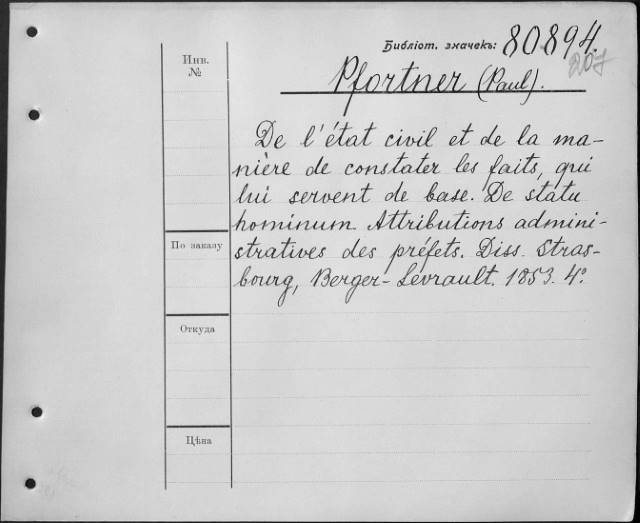 Библіот. значекъ: 80894.
207
Pfortner (Paul).
Инв.
№
De l'état civil et de la ma-
nière de constater les faits, qui
lui servent de base. De statu
hominum. Attributions admini-
stratives des préfets. Diss. Stras-
bourg, Berger-Levrault. 1853. 4°.
По заказу
Откуда
Цѣна